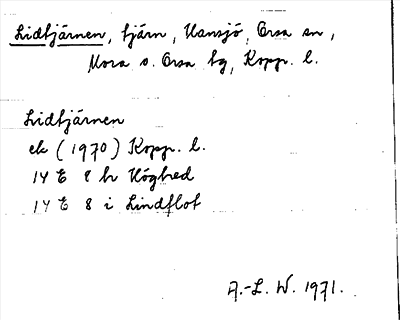 Lidtjärnen, tjärn, Hansjö, Orsa sn,
Mora o. Orsa tg, Kopp. l.
Lidtjärnen
ek (1970) Kopp. l.
14 E 8 h Högbed
14 E 8 i Lindflot
A.-L. W. 1971.